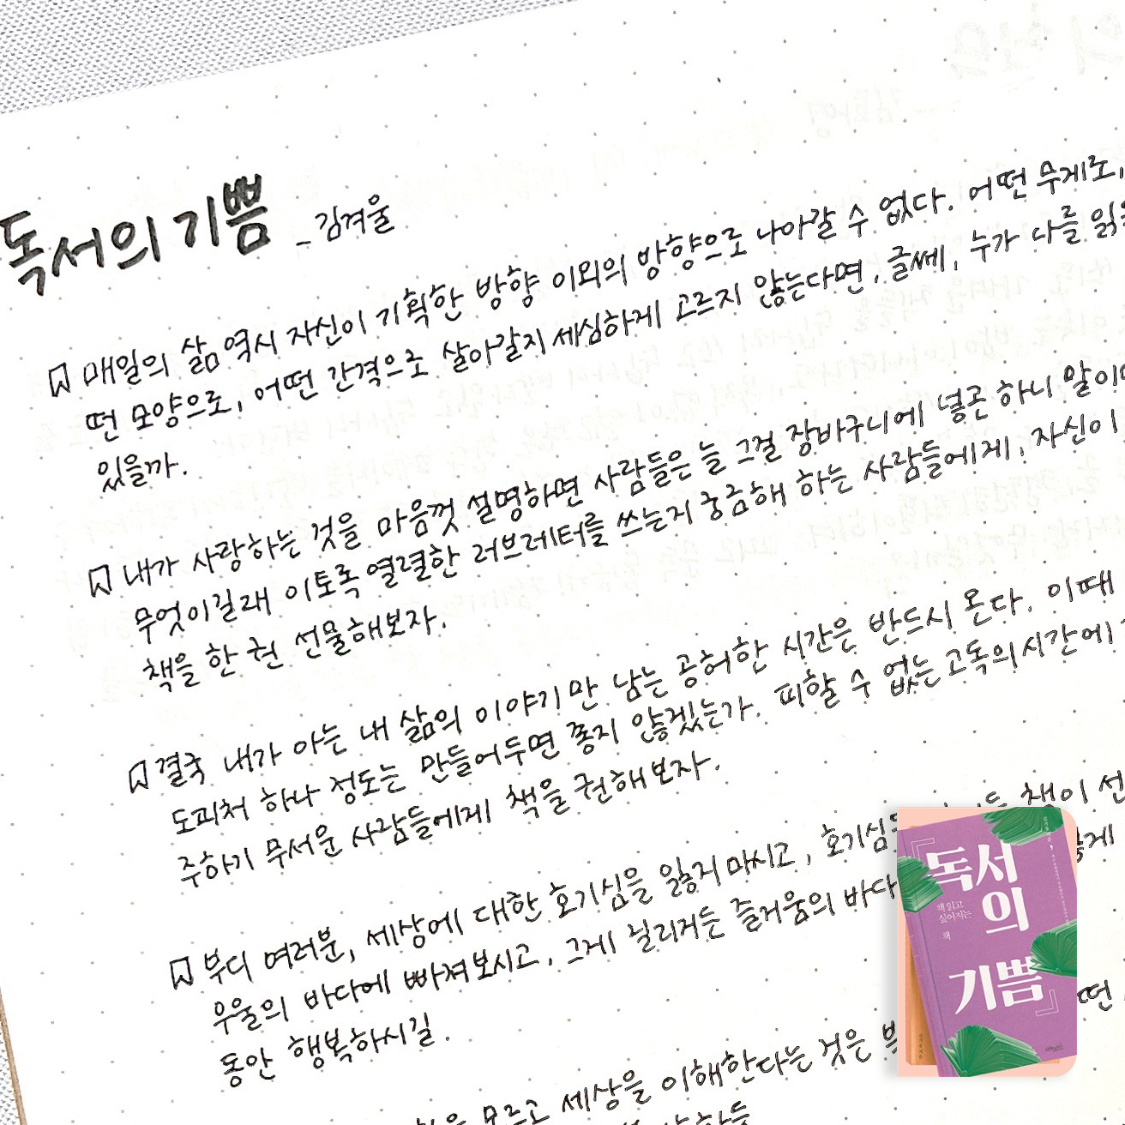 독서의 기쁨 - 김겨울
매일의 삶 역시 자신이 기획한 방향 이외의 방향으로 나아갈 수 없다. 어떤 무게로,
떤 모양으로, 어떤 간격으로 살아갈지 세심하게 고르지 않는다면, 글쎄, 누가 나를
있을까.
내가 사랑하는 것을 마음껏 설명하면 사람들은 늘 그걸 장바구니에 넣곤 하니 말이
무엇이길래 이토록 열렬한 러브레터를 쓰는지 궁금해 하는 사람들에게, 자신이
책을 한 권 선물해보자.
결국 내가 아는 내 삶의 이야기만 남는 공허한 시간은 반드시 온다. 이때
도피처 하나 정도는 만들어두면 좋지 않겠는가. 피할 수 없는 고독의 시간에
주하기 무서운 사람들에게 책을 권해보자.
부디 여러분, 세상에 대한 호기심을 잃지 마시고, 호기심 책이 선
우울의 바다에 빠져보시고, 그게 질리거든 즐거움의 바다
동안 행복하시길.
모르고 세상을 이해한다는 것은
떤
『독서
의
기쁨』
책 읽고
싶어지는
책